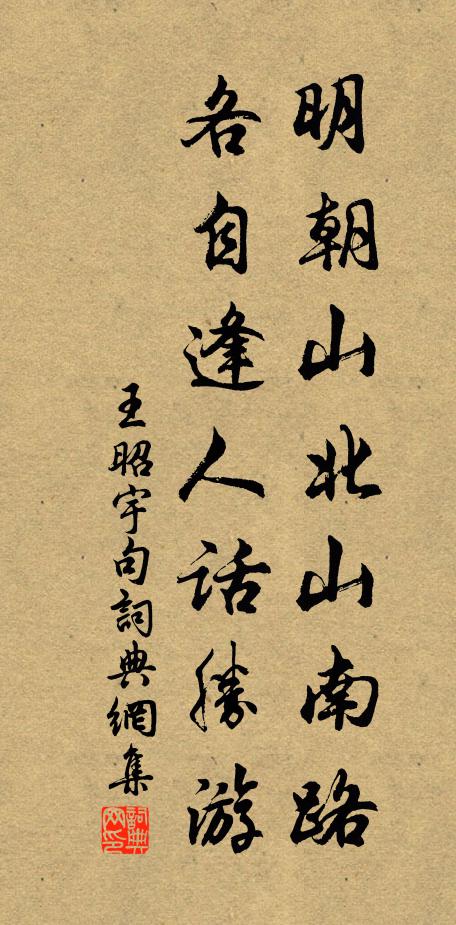 明朝山北山南路
各自逢人话勝游
王昭宇句詞典網集
詞典网印